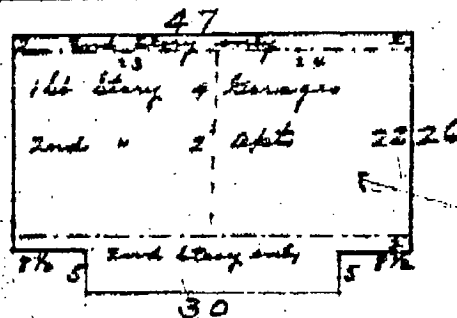 47
2nd Story only
23 24
1st Story 4 Garages
2nd " 2 Apts 22 26
2nd Story only
8½ 5 5 8½
30